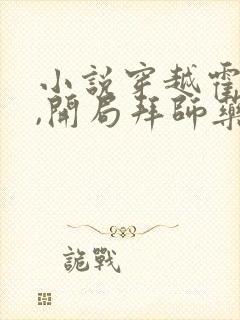 小說穿越
,開局拜師藥
詭戰